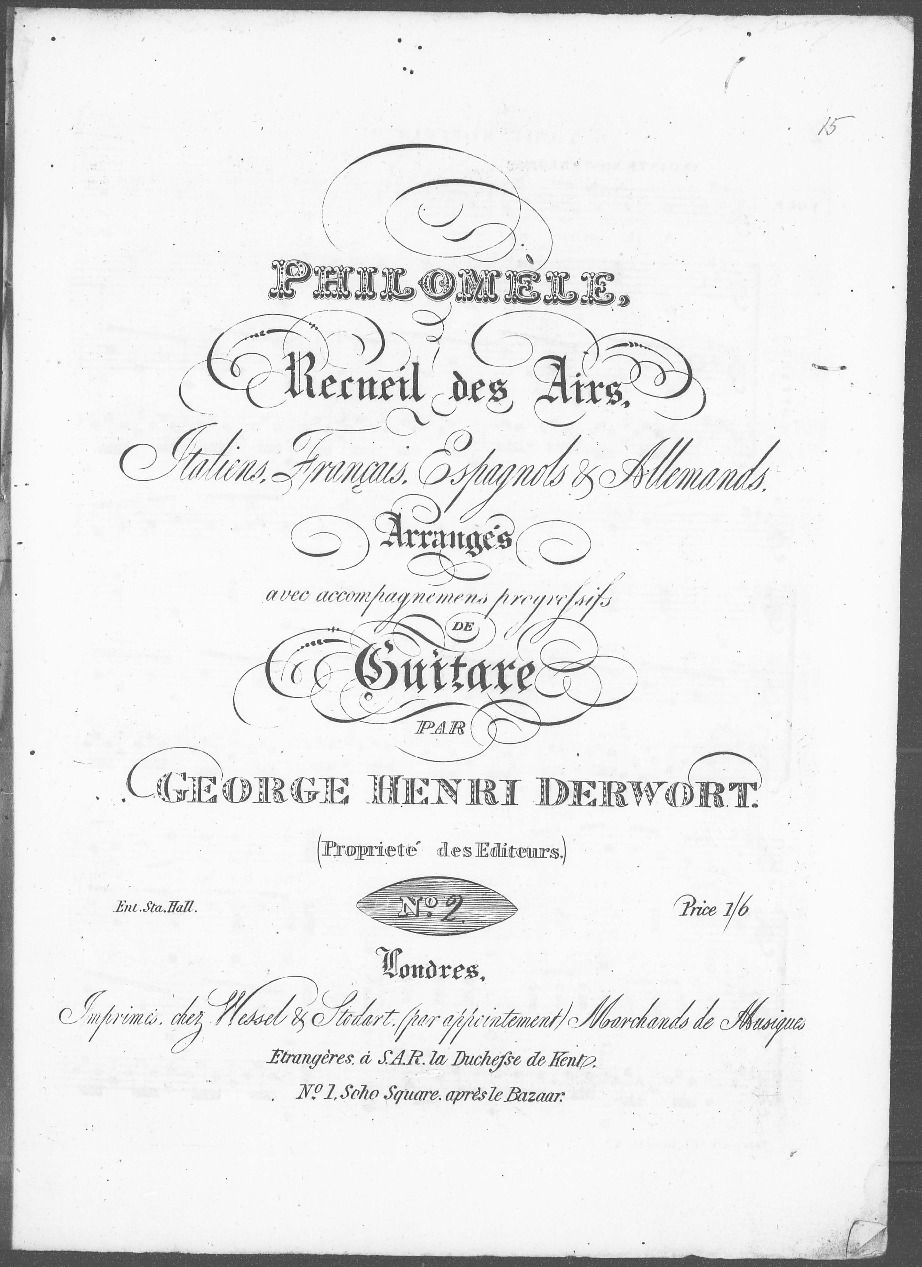 15
PHILOMÈLE,
Recueil des Airs,
Italiens, Français, Espagnols & Allemands.
Arrangés
avec accompagnemens progreſsifs
DE
Guitare
PAR
GEORGE HENRI DERWORT.
(Proprieté des Editeurs.)
Ent. Sta. Hall.
No. 2
Price 1/6
Londres,
Imprimés. chez Wessel & Stodart. (par appointement) Marchands de Musiques
Etrangères, á S.A.R. la Ducheſse de Kent.
No. 1, Soho Square. après le Bazaar.